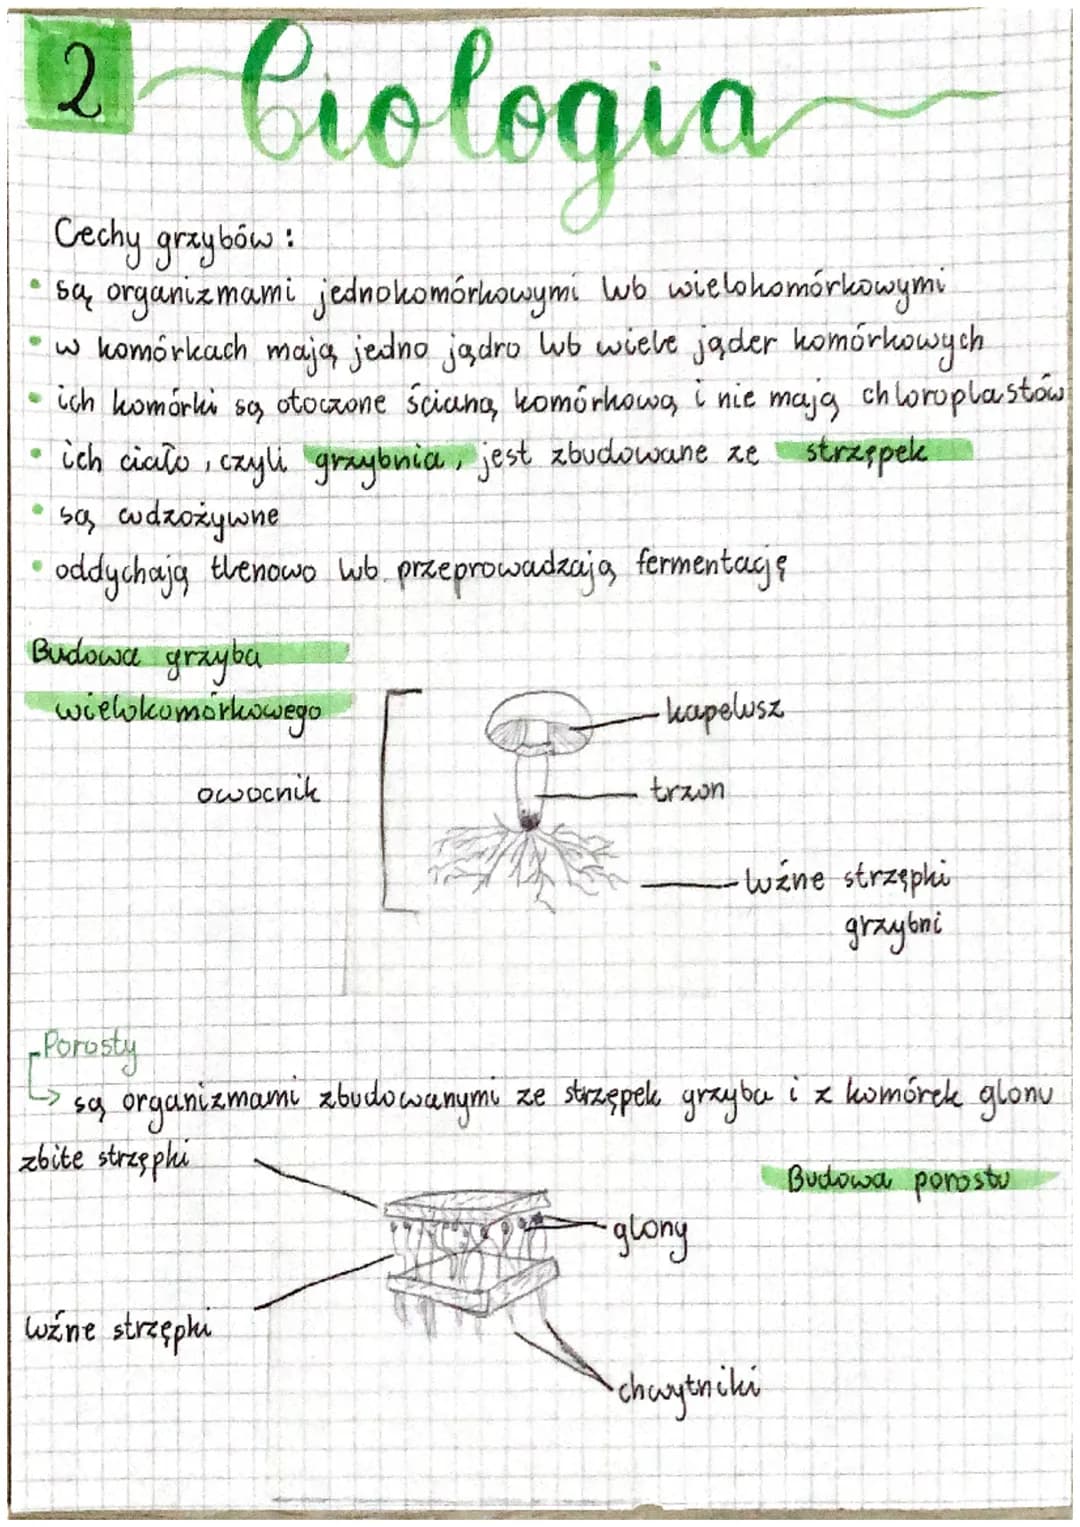 2 Biologia
Cechy grzybów:
• są organizmami jednokomórkowymi lub wielokomórkowymi
• w komórkach mają jedno jądro lub wiele jąder komórkowych
• ich komórki są otoczone ścianą komórkową i nie mają chloroplastów
• ich ciało, czyli grzybnia, jest zbudowane ze strzępek
• są cudzożywne
• oddychają tlenowo lub przeprowadzają fermentację
Budowa grzyba
wielokomórkowego
kapelusz
owocnik
trzon
luźne strzępki
grzybni
Porosty
są organizmami zbudowanymi ze strzępek grzyba i z komórek glonu
zbite strzępki
Budowa porostu
glony
luźne strzępki
chwytniki